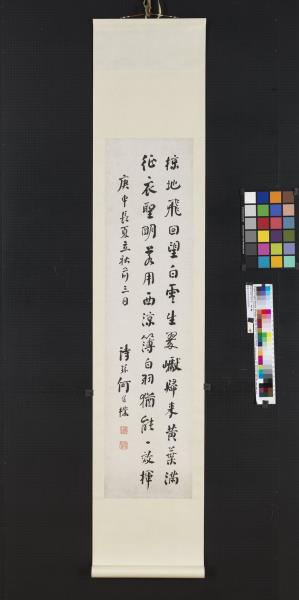 掠地飛回望白雲生翠巘歸來黄葉滿
征衣聖明若用西涼簿白羽猶能一效揮
庚申長夏立秋前三日
詩孫何維樸